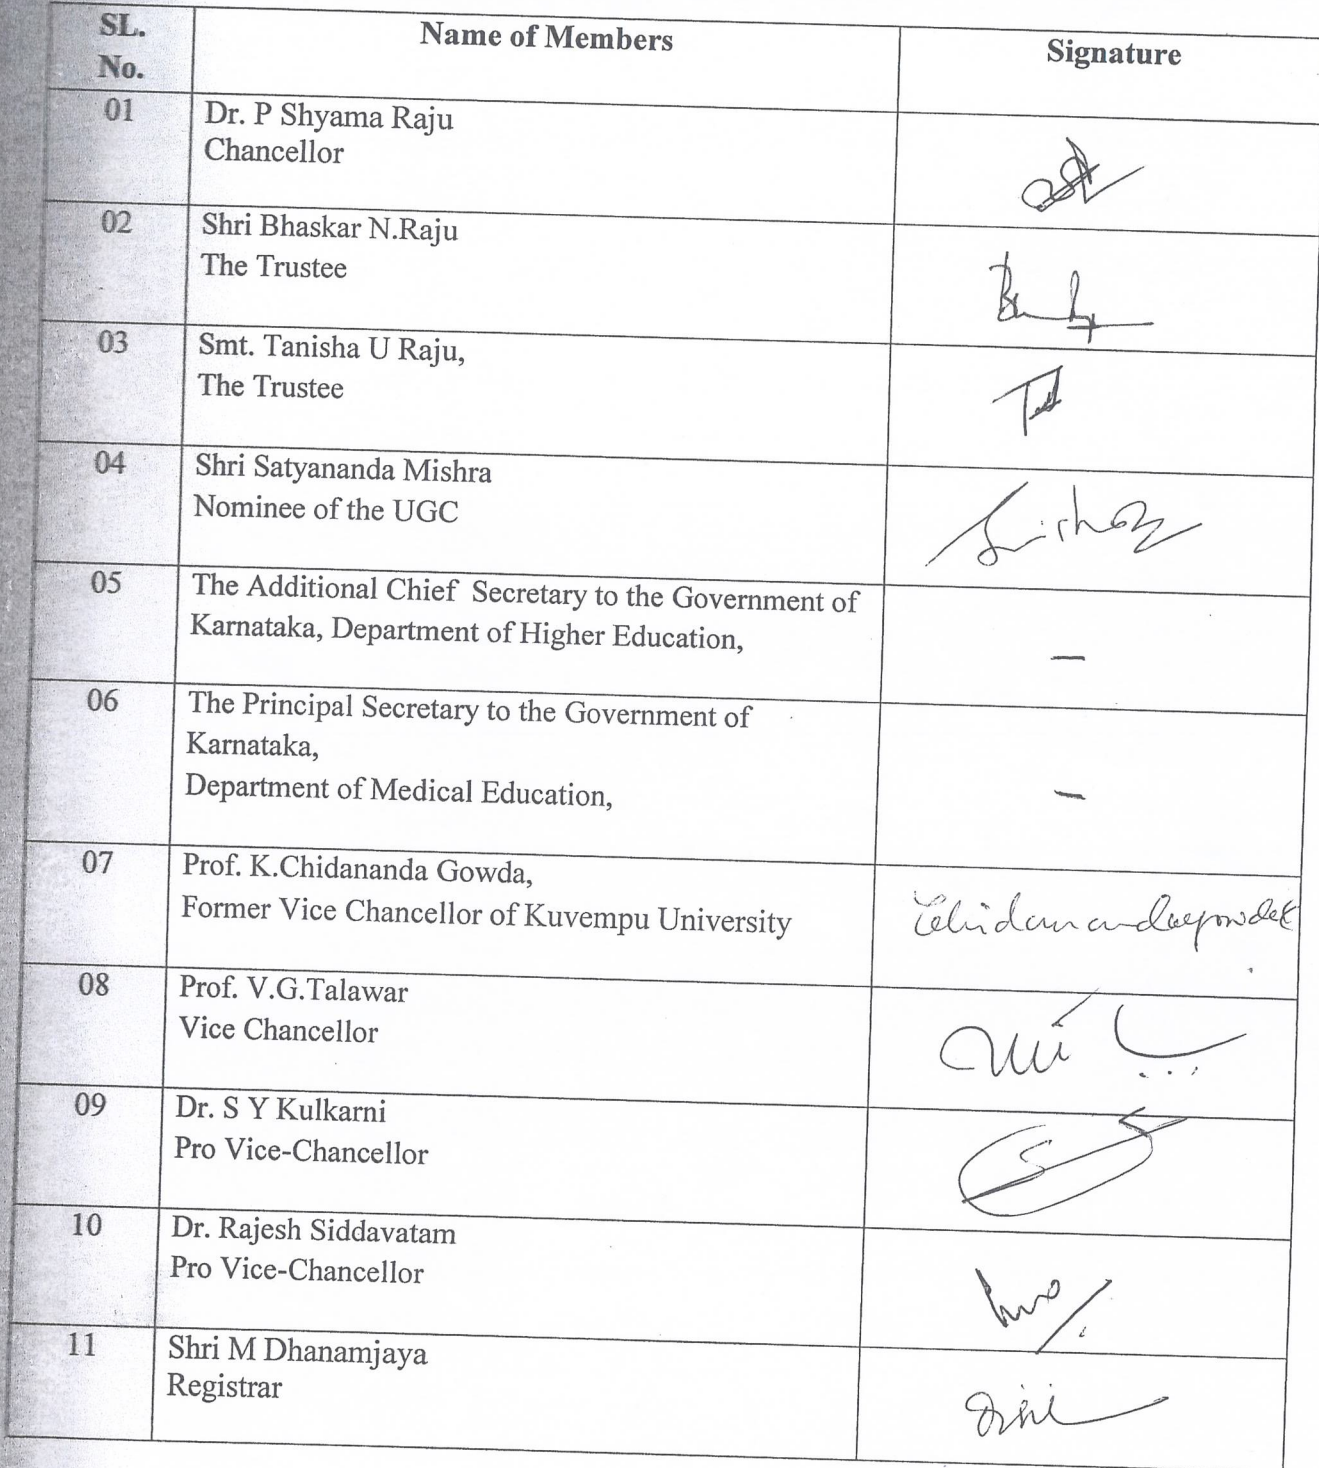 SL. No.
Name of Members
Signature
01
Dr. P Shyama Raju
Chancellor
02
Shri Bhaskar N.Raju
The Trustee
03
Smt. Tanisha U Raju,
The Trustee
04
Shri Satyananda Mishra
Nominee of the UGC
05
The Additional Chief Secretary to the Government of
Karnataka, Department of Higher Education,
–
06
The Principal Secretary to the Government of
Karnataka,
Department of Medical Education,
–
07
Prof. K.Chidananda Gowda,
Former Vice Chancellor of Kuvempu University
08
Prof. V.G.Talawar
Vice Chancellor
09
Dr. S Y Kulkarni
Pro Vice-Chancellor
10
Dr. Rajesh Siddavatam
Pro Vice-Chancellor
11
Shri M Dhanamjaya
Registrar